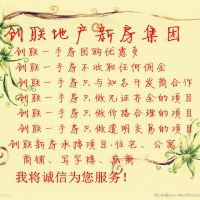 创联地产新房集团
创联一手房团购优惠多
创联一手房不收取任何佣金
创联一手房只与知名开发商合作
创联一手房只做无证券的项目
创联一手房只做价格合理的项目
创联一手房只做透明交易的项目
创联新房承接项目:住宅、公寓
商铺、写字楼、
我将诚信为您服务!